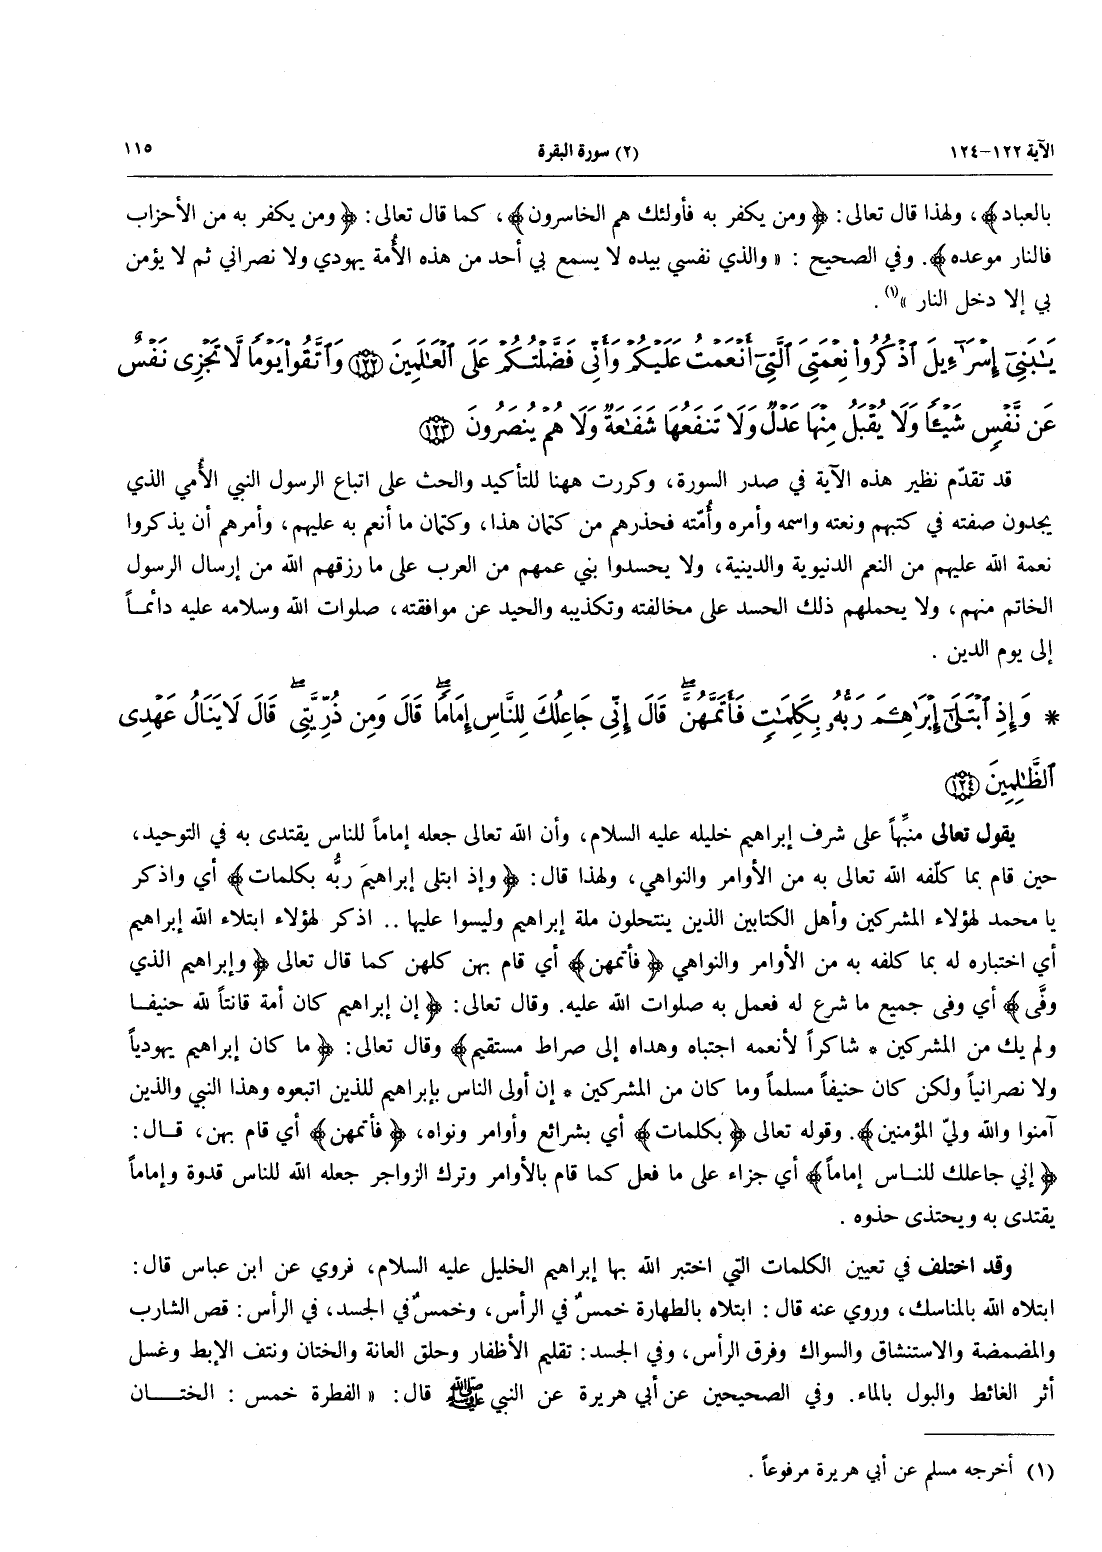 الآية ١٢٢-١٢٤ (٢) سورة البقرة ١١٥
بالعباد﴾، ولهذا قال تعالى: ﴿ومن يكفر به فأولئك هم الخاسرون﴾، كما قال تعالى: ﴿ومن يكفر به من الأحزاب
فالنار موعده﴾. وفي الصحيح : « والذي نفسي بيده لا يسمع بي أحد من هذه الأُمة يهودي ولا نصراني ثم لا يؤمن
بي إلا دخل النار »(١) .
يَٰبَنِىٓ إِسْرَٰٓءِيلَ ٱذْكُرُوا۟ نِعْمَتِىَ ٱلَّتِىٓ أَنْعَمْتُ عَلَيْكُمْ وَأَنِّى فَضَّلْتُكُمْ عَلَى ٱلْعَٰلَمِينَ ﴿١٢٢﴾ وَٱتَّقُوا۟ يَوْمًا لَّا تَجْزِى نَفْسٌ
عَن نَّفْسٍ شَيْـًٔا وَلَا يُقْبَلُ مِنْهَا عَدْلٌ وَلَا تَنفَعُهَا شَفَٰعَةٌ وَلَا هُمْ يُنصَرُونَ ﴿١٢٣﴾
قد تقدّم نظير هذه الآية في صدر السورة، وكررت ههنا للتأكيد والحث على اتباع الرسول النبي الأُمي الذي
يجدون صفته في كتبهم ونعته واسمه وأمره وأُمّته فحذرهم من كتمان هذا، وكتمان ما أنعم به عليهم، وأمرهم أن يذكروا
نعمة الله عليهم من النعم الدنيوية والدينية، ولا يحسدوا بني عمهم من العرب على ما رزقهم الله من إرسال الرسول
الخاتم منهم، ولا يحملهم ذلك الحسد على مخالفته وتكذيبه والحيد عن موافقته، صلوات الله وسلامه عليه دائمـاً
إلى يوم الدين .
* وَإِذِ ٱبْتَلَىٰٓ إِبْرَٰهِـۧمَ رَبُّهُۥ بِكَلِمَٰتٍ فَأَتَمَّهُنَّ ۖ قَالَ إِنِّى جَاعِلُكَ لِلنَّاسِ إِمَامًا ۖ قَالَ وَمِن ذُرِّيَّتِى ۖ قَالَ لَا يَنَالُ عَهْدِى
ٱلظَّٰلِمِينَ ﴿١٢٤﴾
يقول تعالى منبِّهاً على شرف إبراهيم خليله عليه السلام، وأن الله تعالى جعله إماماً للناس يقتدى به في التوحيد،
حين قام بما كلّفه الله تعالى به من الأوامر والنواهي، ولهذا قال: ﴿وإذ ابتلى إبراهيمَ ربُّه بكلمات﴾ أي واذكر
يا محمد لهؤلاء المشركين وأهل الكتابين الذين ينتحلون ملة إبراهيم وليسوا عليها .. اذكر لهؤلاء ابتلاء الله إبراهيم
أي اختباره له بما كلفه به من الأوامر والنواهي ﴿فأتمهن﴾ أي قام بهن كلهن كما قال تعالى ﴿وإبراهيم الذي
وفَّى﴾ أي وفى جميع ما شرع له فعمل به صلوات الله عليه. وقال تعالى: ﴿إن إبراهيم كان أمة قانتاً لله حنيفـا
ولم يك من المشركين * شاكراً لأنعمه اجتباه وهداه إلى صراط مستقيم﴾ وقال تعالى: ﴿ما كان إبراهيم يهودياً
ولا نصرانياً ولكن كان حنيفاً مسلماً وما كان من المشركين * إن أولى الناس بإبراهيم للذين اتبعوه وهذا النبي والذين
آمنوا والله وليّ المؤمنين﴾. وقوله تعالى ﴿بكلمات﴾ أي بشرائع وأوامر ونواه، ﴿فأتمهن﴾ أي قام بهن، قـال:
﴿إني جاعلك للنـاس إماماً﴾ أي جزاء على ما فعل كما قام بالأوامر وترك الزواجر جعله الله للناس قدوة وإماماً
يقتدى به ويحتذى حذوه .
وقد اختلف في تعيين الكلمات التي اختبر الله بها إبراهيم الخليل عليه السلام، فروي عن ابن عباس قال:
ابتلاه الله بالمناسك، وروي عنه قال : ابتلاه بالطهارة خمسٌ في الرأس، وخمسٌ في الجسد، في الرأس: قص الشارب
والمضمضة والاستنشاق والسواك وفرق الرأس، وفي الجسد: تقليم الأظفار وحلق العانة والختان ونتف الإبط وغسل
أثر الغائط والبول بالماء. وفي الصحيحين عن أبي هريرة عن النبي ﷺ قال: « الفطرة خمس : الختـــان
(١) أخرجه مسلم عن أبي هريرة مرفوعاً .